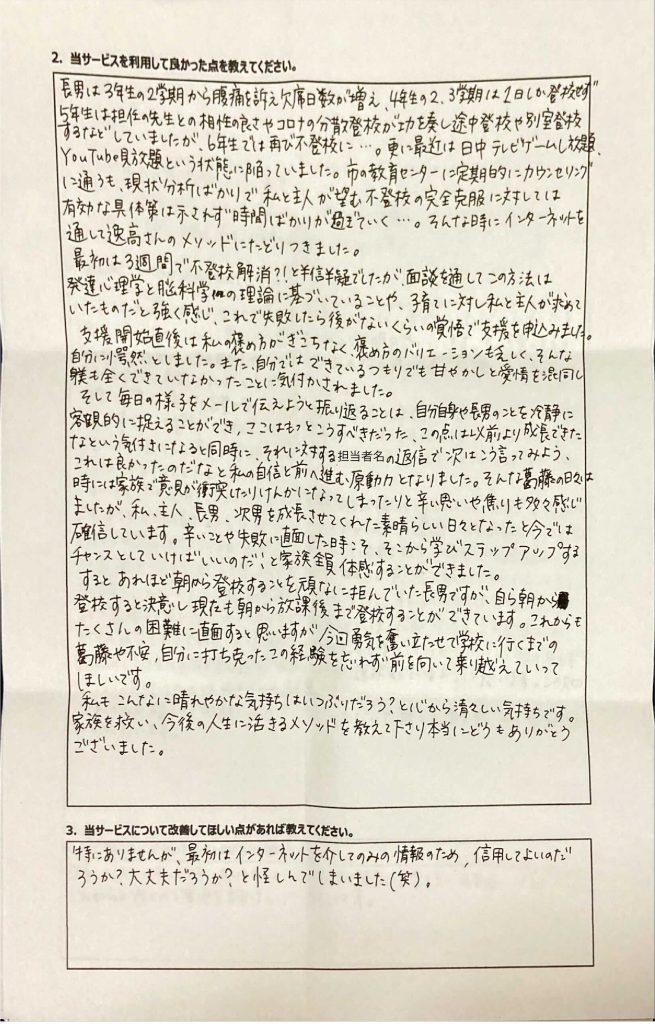 2. 当サービスを利用して良かった点を教えてください。
長男は3年生の2学期から腹痛を訴え欠席日数が増え、4年生の2、3学期は1日しか登校せず
5年生は担任の先生との相性の良さやコロナの分散登校が功を奏し途中登校や別室登校
するなどしていましたが、6年生では再び不登校に…。更に最近は日中テレビゲームし放題、
YouTube見放題という状態に陥っていました。市の教育センターに定期的にカウンセリング
に通うも、現状分析ばかりで私と主人が望む不登校の完全克服に対しては
有効な具体策は示されず時間ばかりが過ぎていく…。そんな時にインターネットを
通して逸高さんのメソッドにたどりつきました。
最初は3週間で不登校解消?!と半信半疑でしたが、面談を通してこの方法は
発達心理学と脳科学の理論に基づいていることや、子育てに対し私と主人が求めて
いたものだと強く感じ、これで失敗したら後がないくらいの覚悟で支援を申込みました。
支援開始直後は私の褒め方がぎこちなく、褒め方のバリエーションも乏しく、そんな
自分に愕然としました。また、自分ではできているつもりでも甘やかしと愛情を混同し
躾も全くできていなかったことに気付かされました。
そして毎日の様子をメールで伝えようと振り返ることは、自分自身や長男のことを冷静に
客観的に捉えることができ、ここはもっとこうすべきだった、この点は以前より成長できた
なという気付きになると同時に、それに対する担当者名の返信で次はこう言ってみよう、
これは良かったのだなと私の自信と前へ進む原動力となりました。そんな葛藤の日々は
時には家族で意見が衝突したりけんかになってしまったりと辛い思いや焦りも多々感じ
ましたが、私、主人、長男、次男を成長させてくれた素晴らしい日々となったと今では
確信しています。辛いことや失敗に直面した時こそ、そこから学びステップアップする
チャンスとしていけばいいのだ!と家族全員体感することができました。
するとあれほど朝から登校することを頑なに拒んでいた長男ですが、自ら朝から
登校すると決意し現在も朝から放課後まで登校することができています。これからも
たくさんの困難に直面すると思いますが今回勇気を奮い立たせて学校に行くまでの
葛藤や不安、自分に打ち克ったこの経験を忘れず前を向いて乗り越えていって
ほしいです。
私もこんなに晴れやかな気持ちはいつぶりだろう?と心から清々しい気持ちです。
家族を救い、今後の人生に活きるメソッドを教えて下さり本当にどうもありがとう
ございました。
3. 当サービスについて改善してほしい点があれば教えてください。
特にありませんが、最初はインターネットを介してのみの情報のため、信用してよいのだ
ろうか?大丈夫だろうか?と怪しんでしまいました(笑)。